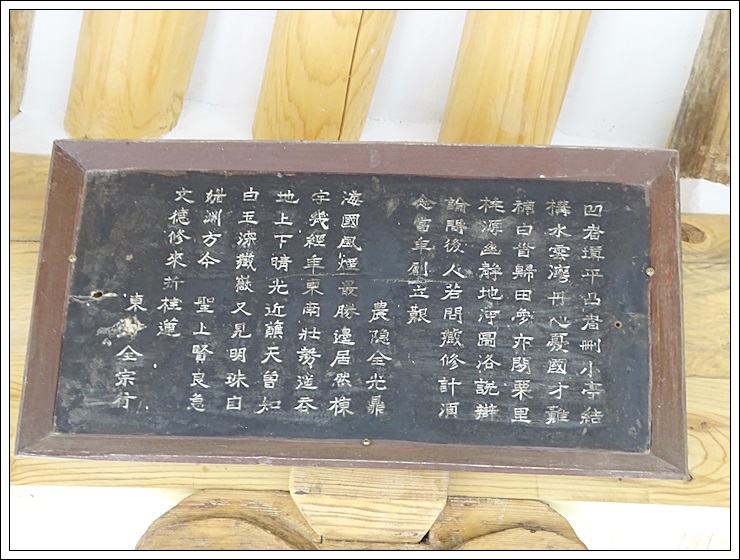 凹者塡平凸者刪小亭結
構水雲灣丹心憂國才難
補白首歸田夢亦閑栗里
桂源幽靜地河圖洛說辯
論間後人若問藏修計須
念當年創立艱
農隱全光鼎
海國風煙最勝邊居然棟
宇幾經年東南壯勢遙吞
地上下晴光近蘸天曾知
白玉深藏嶽又見明珠自
媚淵方今 聖上賢良急
文德修來折桂蓮
東 全宗行